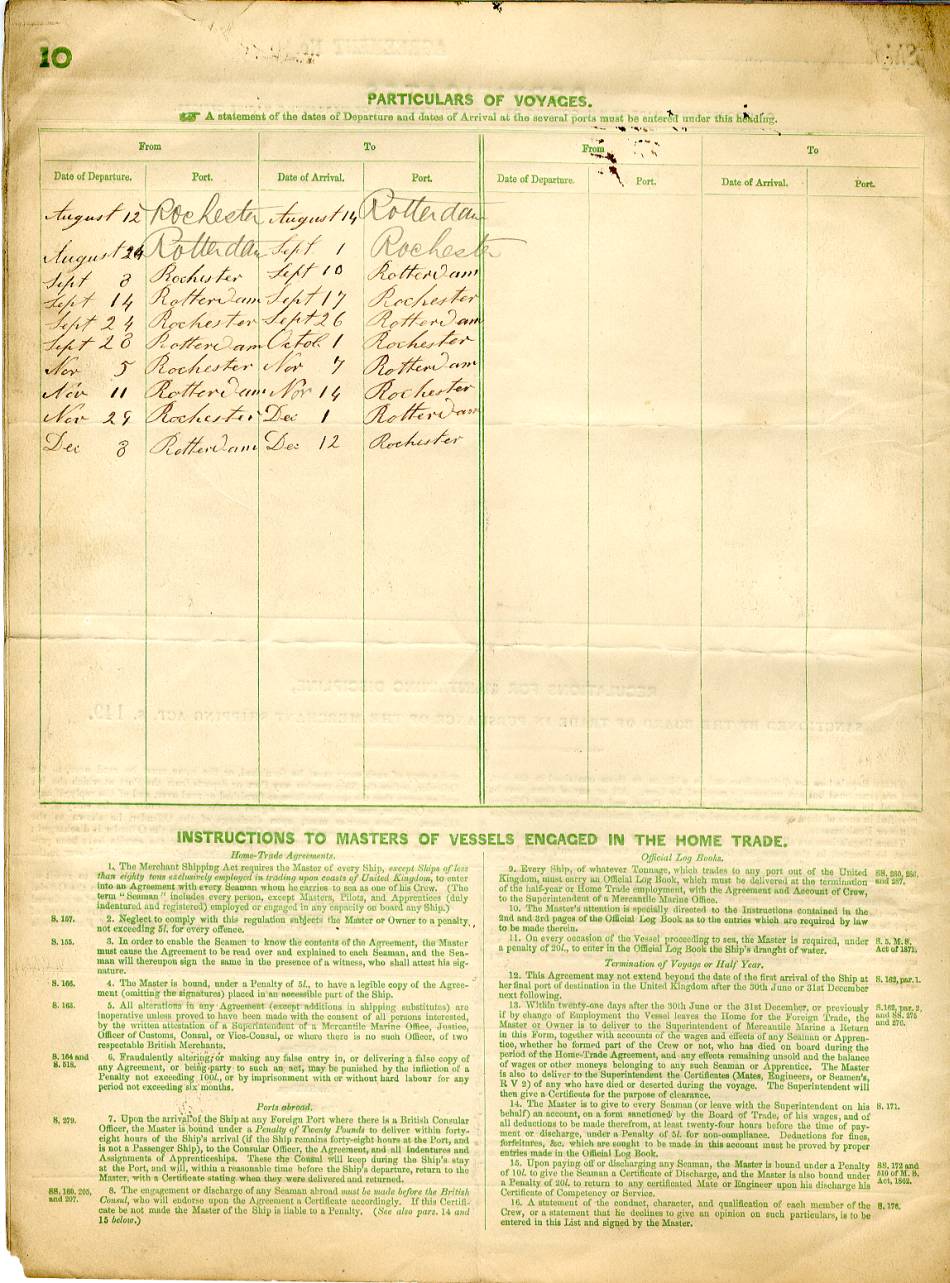 10
PARTICULARS OF VOYAGES.
A statement of the dates of Departure and dates of Arrival at the several ports must be entered under this heading.
From To From To
Date of Departure. Port. Date of Arrival. Port. Date of Departure. Port. Date of Arrival. Port.
August 12 Rochester August 14 Rotterdam
August 24 Rotterdam Sept 1 Rochester
Sept 8 Rochester Sept 10 Rotterdam
Sept 14 Rotterdam Sept 17 Rochester
Sept 24 Rochester Sept 26 Rotterdam
Sept 28 Rotterdam Octob 1 Rochester
Nov 5 Rochester Nov 7 Rotterdam
Nov 11 Rotterdam Nov 14 Rochester
Nov 29 Rochester Dec 1 Rotterdam
Dec 8 Rotterdam Dec 12 Rochester
INSTRUCTIONS TO MASTERS OF VESSELS ENGAGED IN THE HOME TRADE.
Home-Trade Agreements.
1. The Merchant Shipping Act requires the Master of every Ship, except Ships of less
than eighty tons exclusively employed in trading upon coasts of United Kingdom, to enter
into an Agreement with every Seaman whom he carries to sea as one of his Crew. (The
term "Seaman" includes every person, except Masters, Pilots, and Apprentices (duly
indentured and registered) employed or engaged in any capacity on board any Ship.)
S. 157. 2. Neglect to comply with this regulation subjects the Master or Owner to a penalty
not exceeding 5l. for every offence.
S. 155. 3. In order to enable the Seamen to know the contents of the Agreement, the Master
must cause the Agreement to be read over and explained to each Seaman, and the Sea-
man will thereupon sign the same in the presence of a witness, who shall attest his sig-
nature.
S. 166. 4. The Master is bound, under a Penalty of 5l., to have a legible copy of the Agree-
ment (omitting the signatures) placed in an accessible part of the Ship.
S. 163. 5. All alterations in any Agreement (except additions in shipping substitutes) are
inoperative unless proved to have been made with the consent of all persons interested,
by the written attestation of a Superintendent of a Mercantile Marine Office, Justice,
Officer of Customs, Consul, or Vice-Consul, or where there is no such Officer, of two
respectable British Merchants.
S. 164 and S. 518. 6. Fraudulently altering, or making any false entry in, or delivering a false copy of
any Agreement, or being party to such an act, may be punished by the infliction of a
Penalty not exceeding 100l., or by imprisonment with or without hard labour for any
period not exceeding six months.
Ports abroad.
S. 279. 7. Upon the arrival of the Ship at any Foreign Port where there is a British Consular
Officer, the Master is bound under a Penalty of Twenty Pounds to deliver within forty-
eight hours of the Ship's arrival (if the Ship remains forty-eight hours at the Port, and
is not a Passenger Ship), to the Consular Officer, the Agreement, and all Indentures and
Assignments of Apprenticeships. These the Consul will keep during the Ship's stay
at the Port, and will, within a reasonable time before the Ship's departure, return to the
Master, with a Certificate stating when they were delivered and returned.
SS. 160, 205, and 207. 8. The engagement or discharge of any Seaman abroad must be made before the British
Consul, who will endorse upon the Agreement a Certificate accordingly. If this Certifi-
cate be not made the Master of the Ship is liable to a Penalty. (See also pars. 14 and
15 below.)
Official Log Books.
9. Every Ship, of whatever Tonnage, which trades to any port out of the United
Kingdom, must carry an Official Log Book, which must be delivered at the termination
of the half-year or Home Trade employment, with the Agreement and Account of Crew,
to the Superintendent of a Mercantile Marine Office.
10. The Master's attention is specially directed to the Instructions contained in the
2nd and 3rd pages of the Official Log Book as to the entries which are required by law
to be made therein.
11. On every occasion of the Vessel proceeding to sea, the Master is required, under
a penalty of 20l., to enter in the Official Log Book the Ship's draught of water.
S. 5, M. S. Act of 1871.
Termination of Voyage or Half Year.
12. This Agreement may not extend beyond the date of the first arrival of the Ship at
her final port of destination in the United Kingdom after the 30th June or 31st December
next following.
S. 162, par. 1.
13. Within twenty-one days after the 30th June or the 31st December, or previously
if by change of Employment the Vessel leaves the Home for the Foreign Trade, the
Master or Owner is to deliver to the Superintendent of Mercantile Marine a Return
in this Form, together with accounts of the wages and effects of any Seaman or Appren-
tice, whether he formed part of the Crew or not, who has died on board during the
period of the Home-Trade Agreement, and any effects remaining unsold and the balance
of wages or other moneys belonging to any such Seaman or Apprentice. The Master
is also to deliver to the Superintendent the Certificates (Mates, Engineers, or Seamen's,
R V 2) of any who have died or deserted during the voyage. The Superintendent will
then give a Certificate for the purpose of clearance.
S. 162, par. 2, and SS. 275 and 276.
14. The Master is to give to every Seaman (or leave with the Superintendent on his
behalf) an account, on a form sanctioned by the Board of Trade, of his wages, and of
all deductions to be made therefrom, at least twenty-four hours before the time of pay-
ment or discharge, under a Penalty of 5l. for non-compliance. Deductions for fines,
forfeitures, &c. which are sought to be made in this account must be proved by proper
entries made in the Official Log Book.
S. 171.
15. Upon paying off or discharging any Seaman, the Master is bound under a Penalty
of 10l. to give the Seaman a Certificate of Discharge, and the Master is also bound under
a Penalty of 20l. to return to any certificated Mate or Engineer upon his discharge his
Certificate of Competency or Service.
SS. 172 and §10 of M. S. Act, 1862.
16. A statement of the conduct, character, and qualification of each member of the
Crew, or a statement that he declines to give an opinion on such particulars, is to be
entered in this List and signed by the Master.
S. 176.